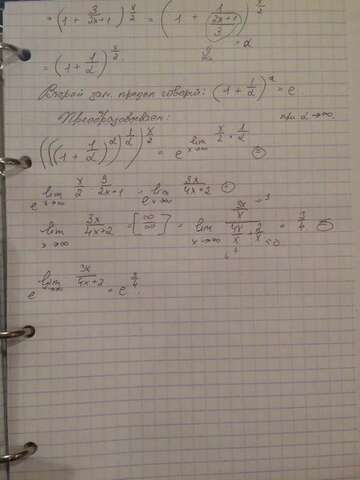 = (1 + 3/(2x+1))^(x/2) = (1 + 1/((2x+1)/3))^(x/2)
= α
= (1 + 1/α)^(x/2)
Второй зам. предел говорит: (1 + 1/α)^α = e
при α→∞
Преобразовываем:
(((1 + 1/α)^α)^(1/α))^(x/2) = e^(lim x→∞ x/2 · 1/α) =
e^(lim x→∞ x/2 · 3/(2x+1)) = e^(lim x→∞ 3x/(4x+2)) =
lim x→∞ 3x/(4x+2) = [∞/∞] = lim x→∞ (3x/x)/(4x/x + 2/x) = 3/4 =
e^(lim x→∞ 3x/(4x+2)) = e^(3/4).